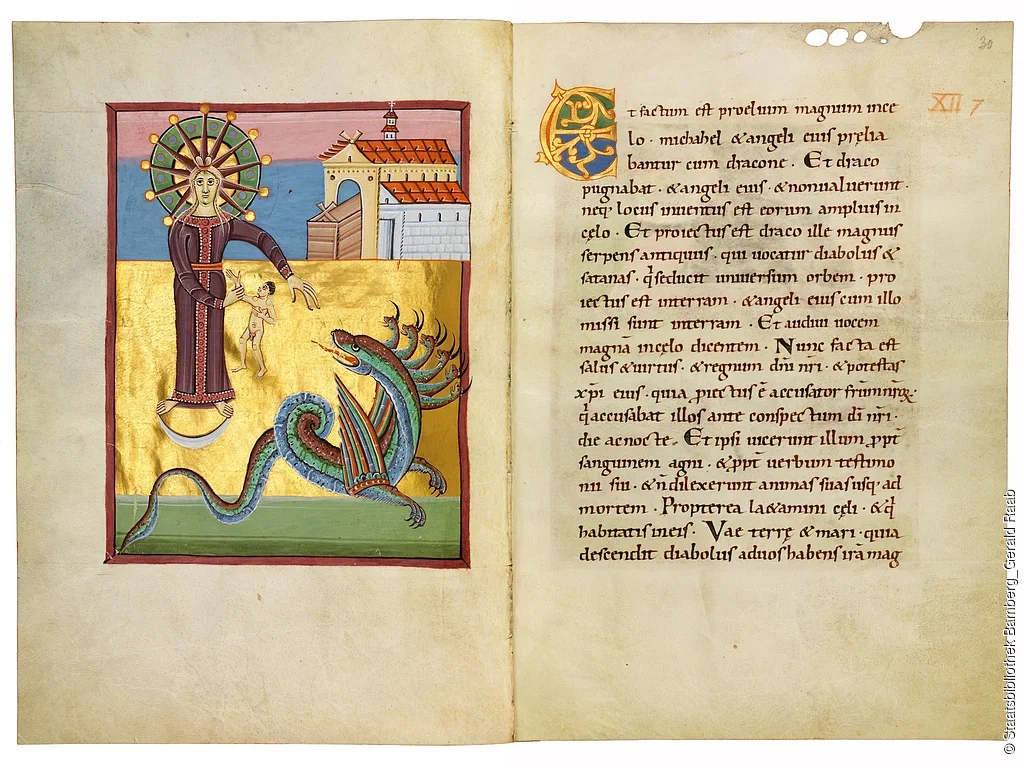 30
XII 7
Et factum est proelium magnum ince
lo · michahel & angeli eius pręlia
bantur cum dracone · Et draco
pugnabat · & angeli eius · & nonvaluerunt ·
neq; locus inventus est eorum amplius in
cęlo · Et proiectus est draco ille magnus
serpens antiquus · qui vocatur diabolus &
satanas · q seducit universum orbem · pro
iectus est interram · & angeli eius cum illo
missi sunt interram · Et audivi vocem
magnā incęlo dicentem · Nunc facta est
salus & virtus · & regnum dn̄i nr̄i · & potestas
xp̄i eius · quia piectus ē accusator
q accusabat illos ante conspectum dī nr̄i ·
die ac nocte · Et ipsi vicerunt illum ppt
sanguinem agni · & ppt verbum testimo
nii sui · & n̄ dilexerunt animas suas usq; ad
mortem · Propterea lętamini cęli · & q
habitatis ineis · Vae terrę & mari · quia
descendit diabolus advos habens irā mag
© Staatsbibliothek Bamberg_Gerald Raab